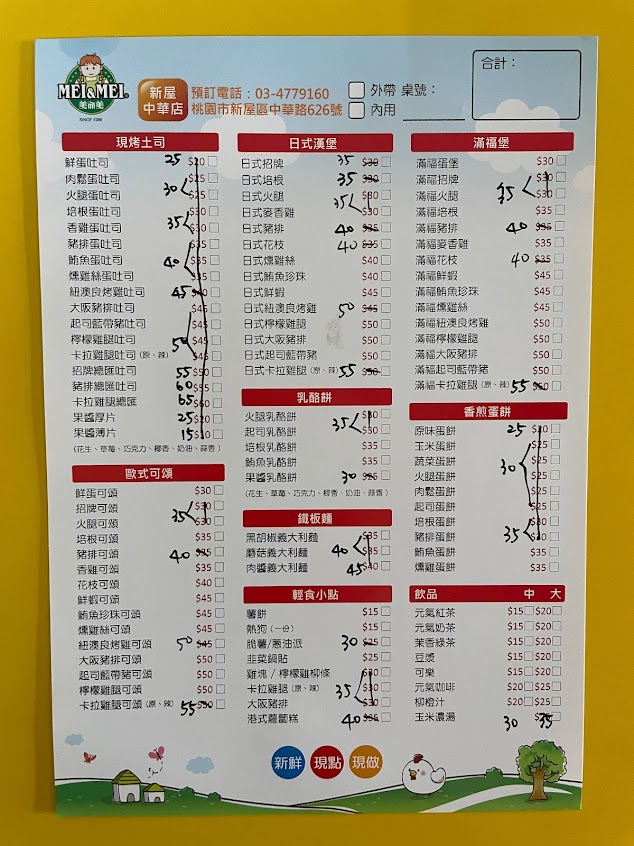 MEI&MEI
美而美
SINCE 1988
新屋
中華店
預訂電話：03-4779160
桃園市新屋區中華路626號
外帶 桌號：
內用
合計：
現烤土司
鮮蛋吐司 25 $20
肉鬆蛋吐司 $25
火腿蛋吐司 30 $25
培根蛋吐司 $30
香雞蛋吐司 35 $30
豬排蛋吐司 $35
鮪魚蛋吐司 40 $35
燻雞絲蛋吐司 $35
紐澳良烤雞吐司 45 $40
大阪豬排吐司 $45
起司藍帶豬吐司 $45
檸檬雞腿吐司 50 $45
卡拉雞腿吐司（原、辣） $45
招牌總匯吐司 55 $50
豬排總匯吐司 60 $55
卡拉雞腿總匯 65 $60
果醬厚片 25 $20
果醬薄片 15 $10
（花生、草莓、巧克力、椰香、奶油、蒜香）
歐式可頌
鮮蛋可頌 $30
招牌可頌 $30
火腿可頌 35 $30
培根可頌 $35
豬排可頌 40 $35
香雞可頌 $35
花枝可頌 $40
鮮蝦可頌 $45
鮪魚珍珠可頌 $45
燻雞絲可頌 $45
紐澳良烤雞可頌 50 $45
大阪豬排可頌 $50
起司藍帶豬可頌 $50
檸檬雞腿可頌 $50
卡拉雞腿可頌（原、辣） 55 $50
日式漢堡
日式招牌 35 $30
日式培根 35 $30
日式火腿 35 $30
日式麥香雞 $30
日式豬排 40 $35
日式花枝 40 $35
日式燻雞絲 $40
日式鮪魚珍珠 $40
日式鮮蝦 $45
日式紐澳良烤雞 50 $45
日式檸檬雞腿 $50
日式大阪豬排 $50
日式起司藍帶豬 $50
日式卡拉雞腿（原、辣） 55 $50
乳酪餅
火腿乳酪餅 35 $30
起司乳酪餅 $30
培根乳酪餅 $35
鮪魚乳酪餅 $35
果醬乳酪餅 30 $25
（花生、草莓、巧克力、椰香、奶油、蒜香）
鐵板麵
黑胡椒義大利麵 $35
蘑菇義大利麵 40 $35
肉醬義大利麵 45 $40
輕食小點
薯餅 $15
熱狗（一份） $15
脆薯/蔥油派 30 $25
韭菜鍋貼 $25
雞塊 / 檸檬雞柳條 $30
卡拉雞腿（原、辣） 35 $30
大阪豬排 $30
港式蘿蔔糕 40 $35
滿福堡
滿福蛋堡 $30
滿福招牌 $30
滿福火腿 35 $30
滿福培根 $35
滿福豬排 40 $35
滿福麥香雞 $35
滿福花枝 40 $35
滿福鮮蝦 $45
滿福鮪魚珍珠 $45
滿福燻雞絲 $45
滿福紐澳良烤雞 $50
滿福檸檬雞腿 $50
滿福大阪豬排 $50
滿福起司藍帶豬 $50
滿福卡拉雞腿（原、辣） 55 $50
香煎蛋餅
原味蛋餅 25 $20
玉米蛋餅 $25
蔬菜蛋餅 30 $25
火腿蛋餅 $25
肉鬆蛋餅 $25
起司蛋餅 $25
培根蛋餅 $30
豬排蛋餅 35 $30
鮪魚蛋餅 $35
燻雞蛋餅 $35
飲品 中 大
元氣紅茶 $15 $20
元氣奶茶 $15 $20
茉香綠茶 $15 $20
豆漿 $15 $20
可樂 $15 $20
元氣咖啡 $20 $25
柳橙汁 $20 $25
玉米濃湯 30 35
新鮮 現點 現做